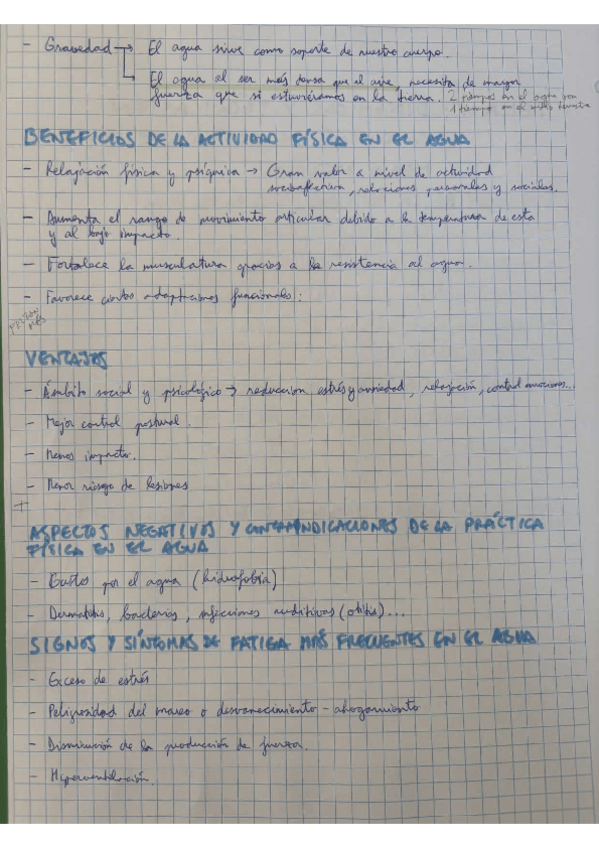 - Gravedad → El agua sirve como soporte de nuestro cuerpo.
↳ El agua al ser más densa que el aire, necesita de mayor
fuerza que si estuviéramos en la tierra. 2 tiempos en el agua son
1 tiempo en el medio terrestre
BENEFICIOS DE LA ACTIVIDAD FÍSICA EN EL AGUA
- Relajación física y psíquica → Gran valor a nivel de actividad
socioafectiva, relaciones personales y sociales.
- Aumenta el rango de movimiento articular debido a la temperatura de esta
y al bajo impacto.
- Fortalece la musculatura gracias a la resistencia al agua.
- Favorece ciertas adaptaciones funcionales:
VENTAJAS
- Ámbito social y psicológico → reducción estrés y ansiedad, relajación, control emociones...
- Mejor control postural.
- Menos impacto.
- Menor riesgo de lesiones
ASPECTOS NEGATIVOS Y CONTRAINDICACIONES DE LA PRÁCTICA
FÍSICA EN EL AGUA
- por el agua (hidrofobia)
- Dermatitis, bacterias, infecciones auditivas (otitis)...
SIGNOS Y SÍNTOMAS DE FATIGA MÁS FRECUENTES EN EL AGUA
- Exceso de estrés
- Peligrosidad del mareo o desvanecimiento - ahogamiento
- Disminución de la producción de fuerza.
- Hiperventilación.